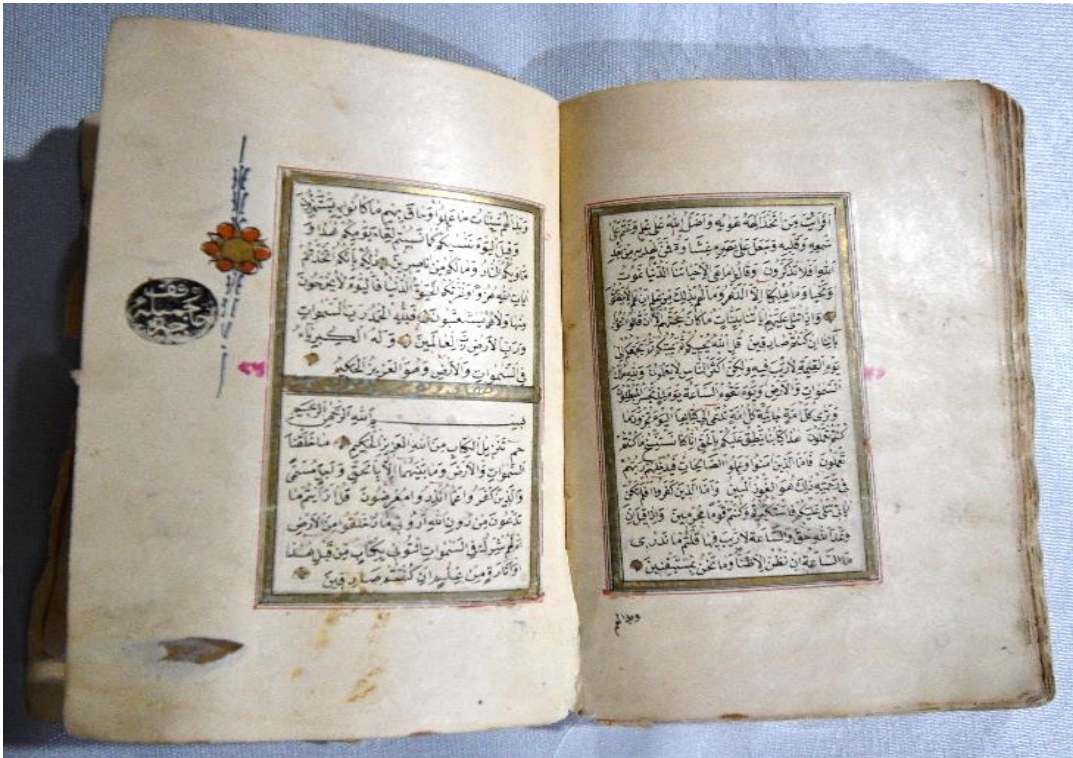 افرايت من اتخذ الهه هويه واضله الله على علم وختم على
سمعه وقلبه وجعل على بصره غشاوة فمن يهديه من بعد
الله افلا تذكرون وقالوا ما هي الا حياتنا الدنيا نموت
ونحيا وما يهلكنا الا الدهر وما لهم بذلك من علم ان هم الا يظنون
واذا تتلى عليهم اياتنا بينات ما كان حجتهم الا ان قالوا ائتوا
بآبائنا ان كنتم صادقين قل الله يحييكم ثم يميتكم ثم يجمعكم الى
يوم القيمة لا ريب فيه ولكن اكثر الناس لا يعلمون ولله ملك
السموات والارض ويوم تقوم الساعة يومئذ يخسر المبطلون
وترى كل امة جاثية كل امة تدعى الى كتابها اليوم تجزون ما
كنتم تعملون هذا كتابنا ينطق عليكم بالحق انا كنا نستنسخ ما كنتم
تعملون فاما الذين امنوا وعملوا الصالحات فيدخلهم ربهم
في رحمته ذلك هو الفوز المبين واما الذين كفروا افلم تكن
اياتي تتلى عليكم فاستكبرتم وكنتم قوما مجرمين واذا قيل ان
وعد الله حق والساعة لا ريب فيها قلتم ما ندرى
ما الساعة ان نظن الا ظنا وما نحن بمستيقنين
وبدا لهم
وبدا لهم سيئات ما عملوا وحاق بهم ما كانوا به يستهزؤن
وقيل اليوم ننسيكم كما نسيتم لقاء يومكم هذا و
ماويكم النار وما لكم من ناصرين ذلكم بانكم اتخذتم
ايات الله هزوا وغرتكم الحيوة الدنيا فاليوم لا يخرجون
منها ولا هم يستعتبون فلله الحمد رب السموات
ورب الارض رب العالمين وله الكبرياء
في السموات والارض وهو العزيز الحكيم
بسم الله الرحمن الرحيم
حم تنزيل الكتاب من الله العزيز الحكيم ما خلقنا
السموات والارض وما بينهما الا بالحق واجل مسمى
والذين كفروا عما انذروا معرضون قل ارايتم ما
تدعون من دون الله اروني ماذا خلقوا من الارض
ام لهم شرك في السموات ائتوني بكتاب من قبل هذا
او اثارة من علم ان كنتم صادقين